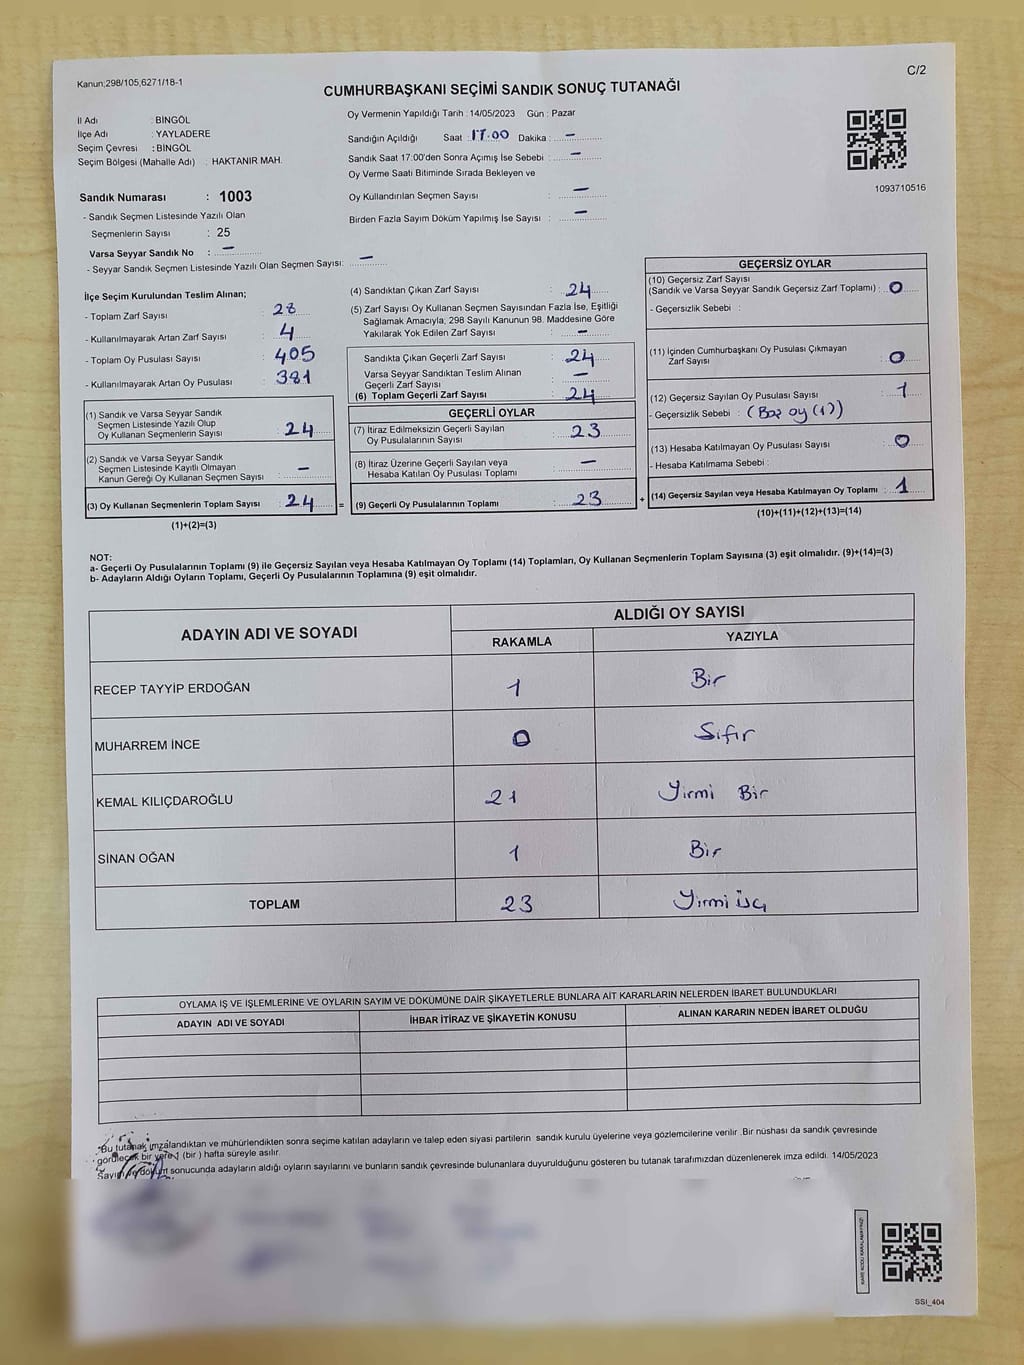 Kanun;298/105,6271/18-1
C/2
CUMHURBAŞKANI SEÇİMİ SANDIK SONUÇ TUTANAĞI
İl Adı : BİNGÖL
İlçe Adı : YAYLADERE
Seçim Çevresi : BİNGÖL
Seçim Bölgesi (Mahalle Adı) : HAKTANIR MAH.
Sandık Numarası : 1003
- Sandık Seçmen Listesinde Yazılı Olan
Seçmenlerin Sayısı : 25
Varsa Seyyar Sandık No : –
- Seyyar Sandık Seçmen Listesinde Yazılı Olan Seçmen Sayısı: –
Oy Vermenin Yapıldığı Tarih : 14/05/2023 Gün : Pazar
Sandığın Açıldığı Saat : 17.00 Dakika : –
Sandık Saat 17:00'den Sonra Açımış İse Sebebi : –
Oy Verme Saati Bitiminde Sırada Bekleyen ve
Oy Kullandırılan Seçmen Sayısı : –
Birden Fazla Sayım Döküm Yapılmış İse Sayısı : –
1093710516
İlçe Seçim Kurulundan Teslim Alınan;
- Toplam Zarf Sayısı : 28
- Kullanılmayarak Artan Zarf Sayısı : 4
- Toplam Oy Pusulası Sayısı : 405
- Kullanılmayarak Artan Oy Pusulası : 381
(1) Sandık ve Varsa Seyyar Sandık
Seçmen Listesinde Yazılı Olup
Oy Kullanan Seçmenlerin Sayısı : 24
(2) Sandık ve Varsa Seyyar Sandık
Seçmen Listesinde Kayıtlı Olmayan
Kanun Gereği Oy Kullanan Seçmen Sayısı : –
(3) Oy Kullanan Seçmenlerin Toplam Sayısı : 24 =
(1)+(2)=(3)
(4) Sandıktan Çıkan Zarf Sayısı : 24
(5) Zarf Sayısı Oy Kullanan Seçmen Sayısından Fazla İse, Eşitliği
Sağlamak Amacıyla; 298 Sayılı Kanunun 98. Maddesine Göre
Yakılarak Yok Edilen Zarf Sayısı : –
Sandıkta Çıkan Geçerli Zarf Sayısı : 24
Varsa Seyyar Sandıktan Teslim Alınan
Geçerli Zarf Sayısı : –
(6) Toplam Geçerli Zarf Sayısı : 24
GEÇERLİ OYLAR
(7) İtiraz Edilmeksizin Geçerli Sayılan
Oy Pusulalarının Sayısı : 23
(8) İtiraz Üzerine Geçerli Sayılan veya
Hesaba Katılan Oy Pusulası Toplamı : –
(9) Geçerli Oy Pusulalarının Toplamı : 23 +
GEÇERSİZ OYLAR
(10) Geçersiz Zarf Sayısı
(Sandık ve Varsa Seyyar Sandık Geçersiz Zarf Toplamı) : 0
- Geçersizlik Sebebi :
(11) İçinden Cumhurbaşkanı Oy Pusulası Çıkmayan
Zarf Sayısı : 0
(12) Geçersiz Sayılan Oy Pusulası Sayısı : 1
- Geçersizlik Sebebi : (Boş oy (1))
(13) Hesaba Katılmayan Oy Pusulası Sayısı : 0
- Hesaba Katılmama Sebebi :
(14) Geçersiz Sayılan veya Hesaba Katılmayan Oy Toplamı : 1
(10)+(11)+(12)+(13)=(14)
NOT:
a- Geçerli Oy Pusulalarının Toplamı (9) ile Geçersiz Sayılan veya Hesaba Katılmayan Oy Toplamı (14) Toplamları, Oy Kullanan Seçmenlerin Toplam Sayısına (3) eşit olmalıdır. (9)+(14)=(3)
b- Adayların Aldığı Oyların Toplamı, Geçerli Oy Pusulalarının Toplamına (9) eşit olmalıdır.
ADAYIN ADI VE SOYADI ALDIĞI OY SAYISI
RAKAMLA YAZIYLA
RECEP TAYYİP ERDOĞAN 1 Bir
MUHARREM İNCE 0 Sıfır
KEMAL KILIÇDAROĞLU 21 Yirmi Bir
SİNAN OĞAN 1 Bir
TOPLAM 23 Yirmi üç
OYLAMA İŞ VE İŞLEMLERİNE VE OYLARIN SAYIM VE DÖKÜMÜNE DAİR ŞİKAYETLERLE BUNLARA AİT KARARLARIN NELERDEN İBARET BULUNDUKLARI
ADAYIN ADI VE SOYADI İHBAR İTİRAZ VE ŞİKAYETİN KONUSU ALINAN KARARIN NEDEN İBARET OLDUĞU
*Bu tutanak imzalandıktan ve mühürlendikten sonra seçime katılan adayların ve talep eden siyasi partilerin sandık kurulu üyelerine veya gözlemcilerine verilir .Bir nüshası da sandık çevresinde
görülecek bir yere 1 (bir ) hafta süreyle asılır.
Sayım ve döküm sonucunda adayların aldığı oyların sayılarını ve bunların sandık çevresinde bulunanlara duyurulduğunu gösteren bu tutanak tarafımızdan düzenlenerek imza edildi. 14/05/2023
SSI_404